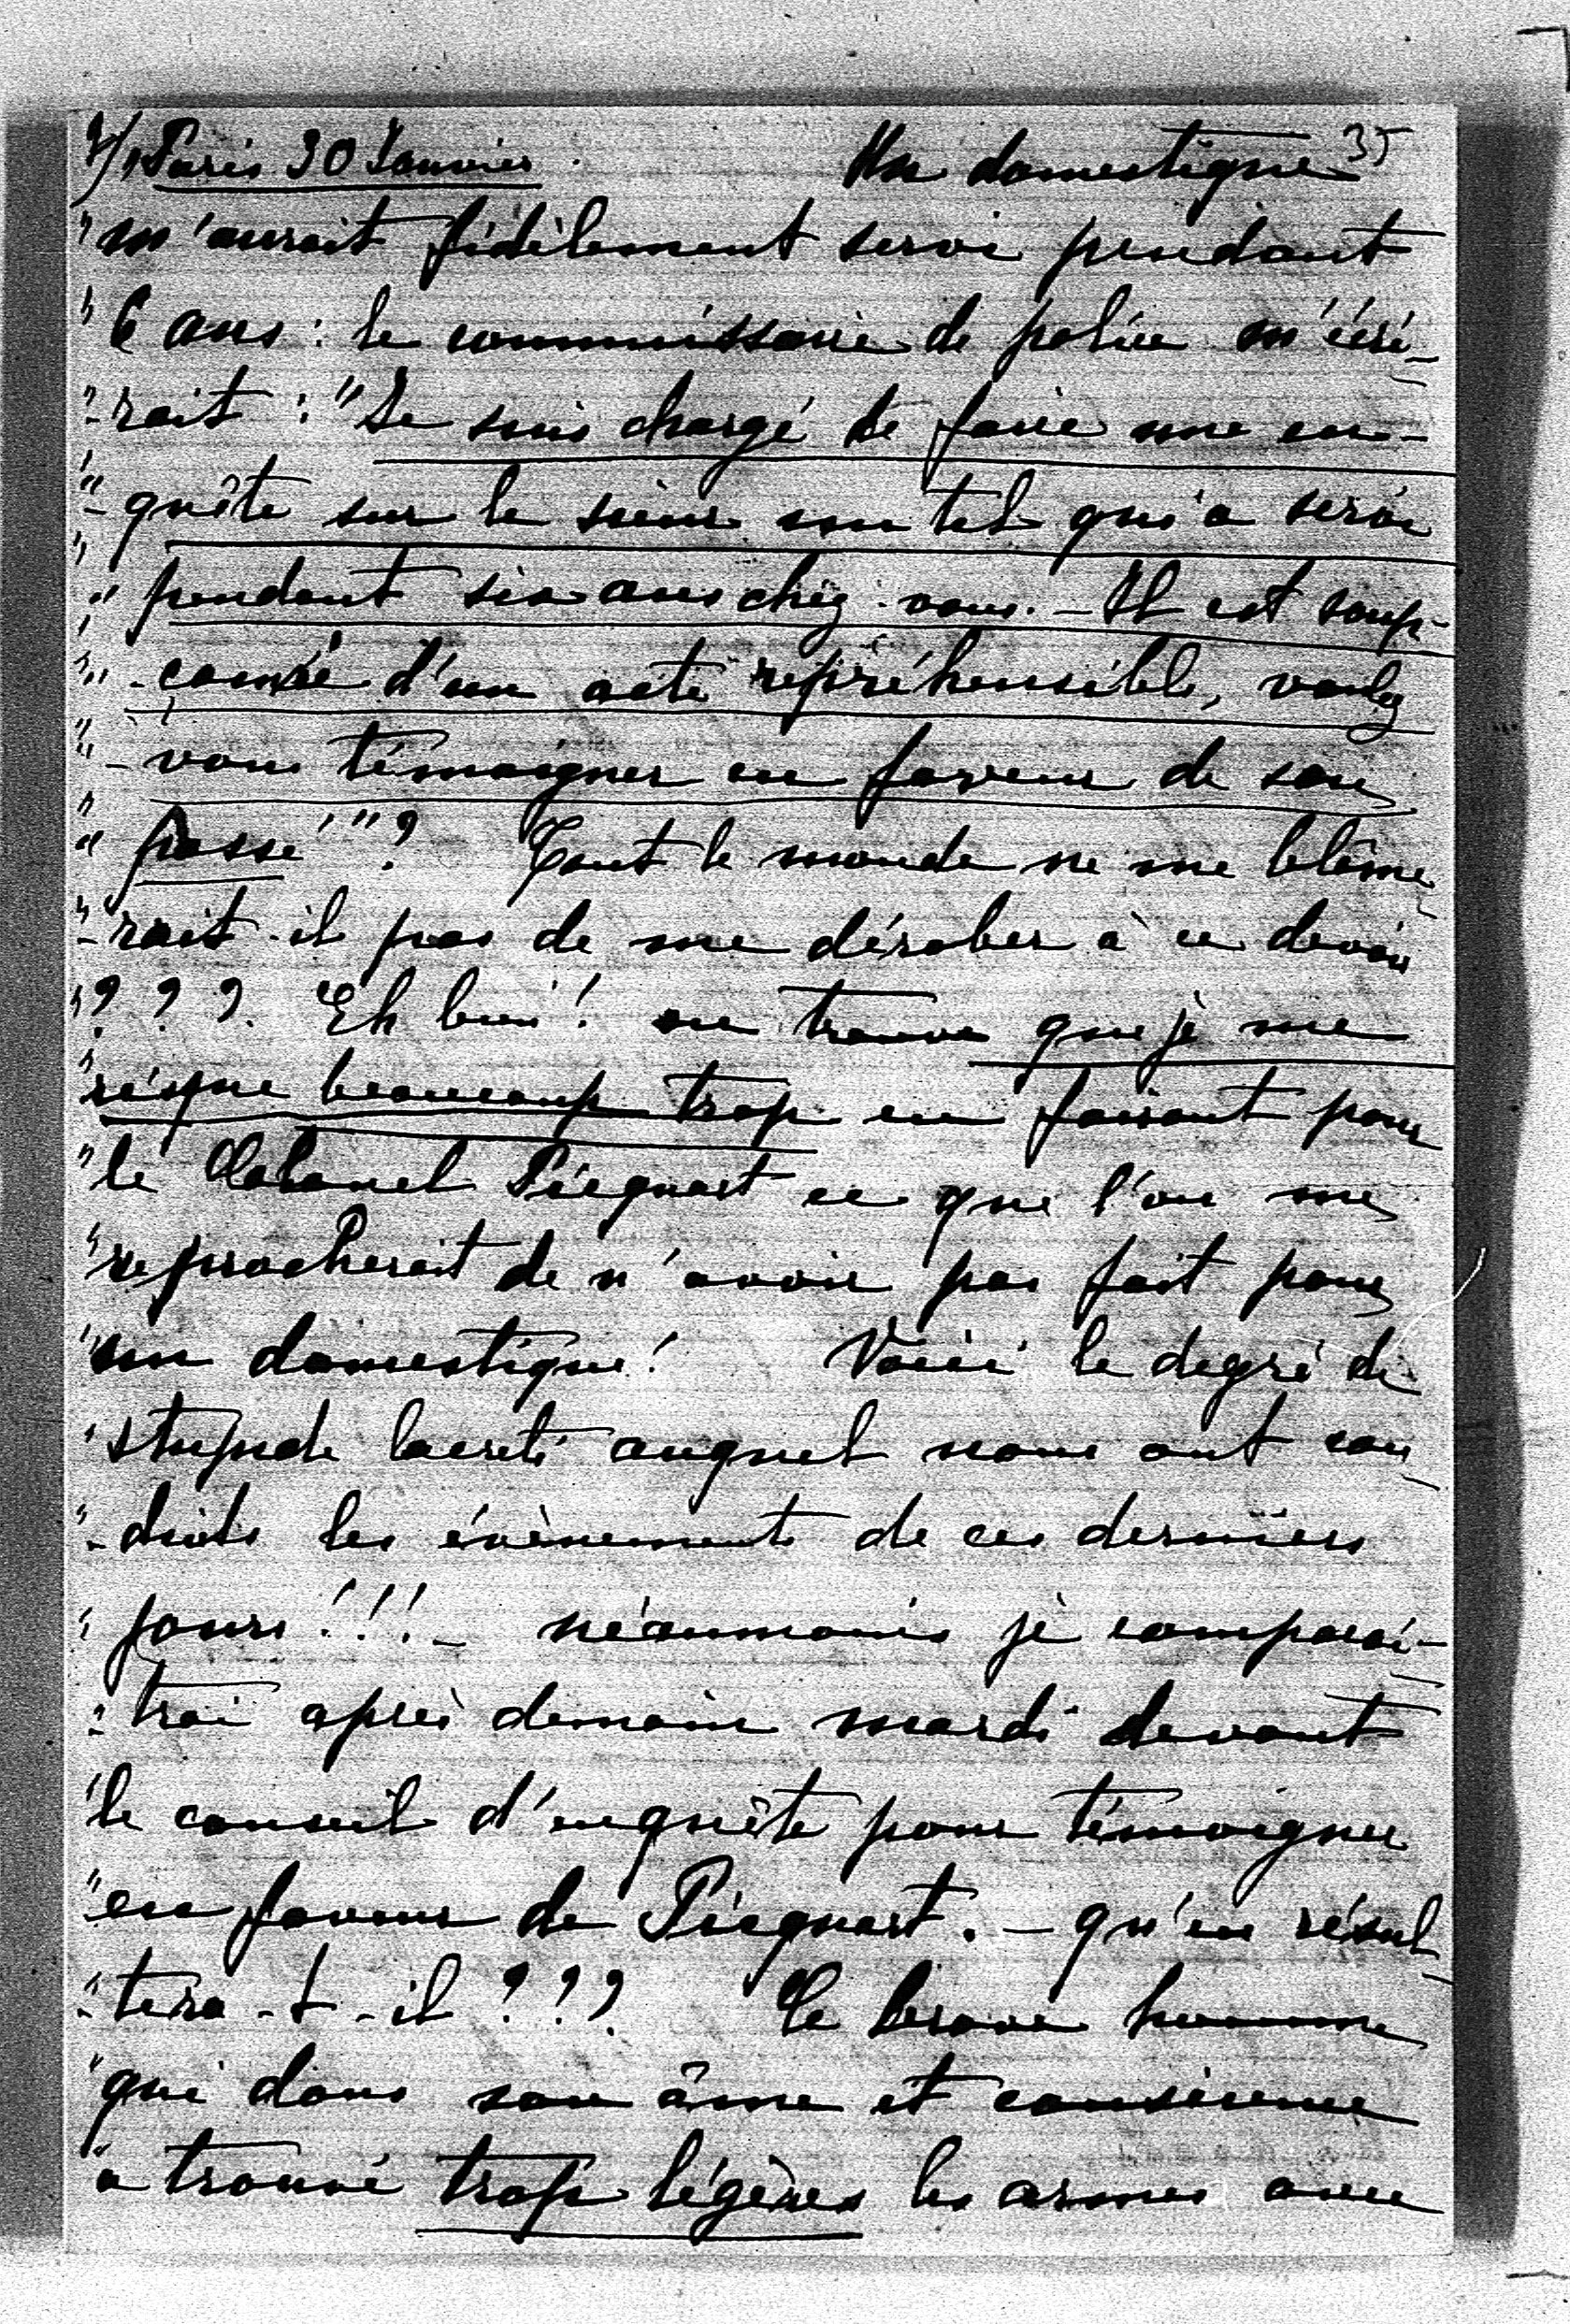 2/ Paris 30 Janvier. Un domestique 35
" m'aurait fidèlement servi pendant
" 6 ans : le commissaire de police m'écri-
"-rait : "Je suis chargé de faire une en-
"-quête sur le sieur un tel qui a servi
" pendant six ans chez vous. – Il est soup-
"-çonné d'un acte repréhensible, voulez
"-vous témoigner en faveur de son
" passé"? Tout le monde ne me blâme-
"-rait-il pas de me dérober à ce devoir
" ? ? ? Eh bien ! on trouve que je me
" risque beaucoup trop en faisant pour
" le Colonel Picquart ce que l'on me
" reprocherait de n'avoir pas fait pour
" un domestique ! Voici le degré de
" stupide lacheté auquel nous ont con-
"-duits les évènements de ces derniers
" jours !!! – néanmoins je comparaî-
"-trai après demain mardi devant
" le conseil d'enquête pour témoigner
" en faveur de Picquart. – qu'en résul-
"-tera-t-il ??? Le brave homme
" qui dans son âme et conscience
" a trouvé trop légères les armes avec